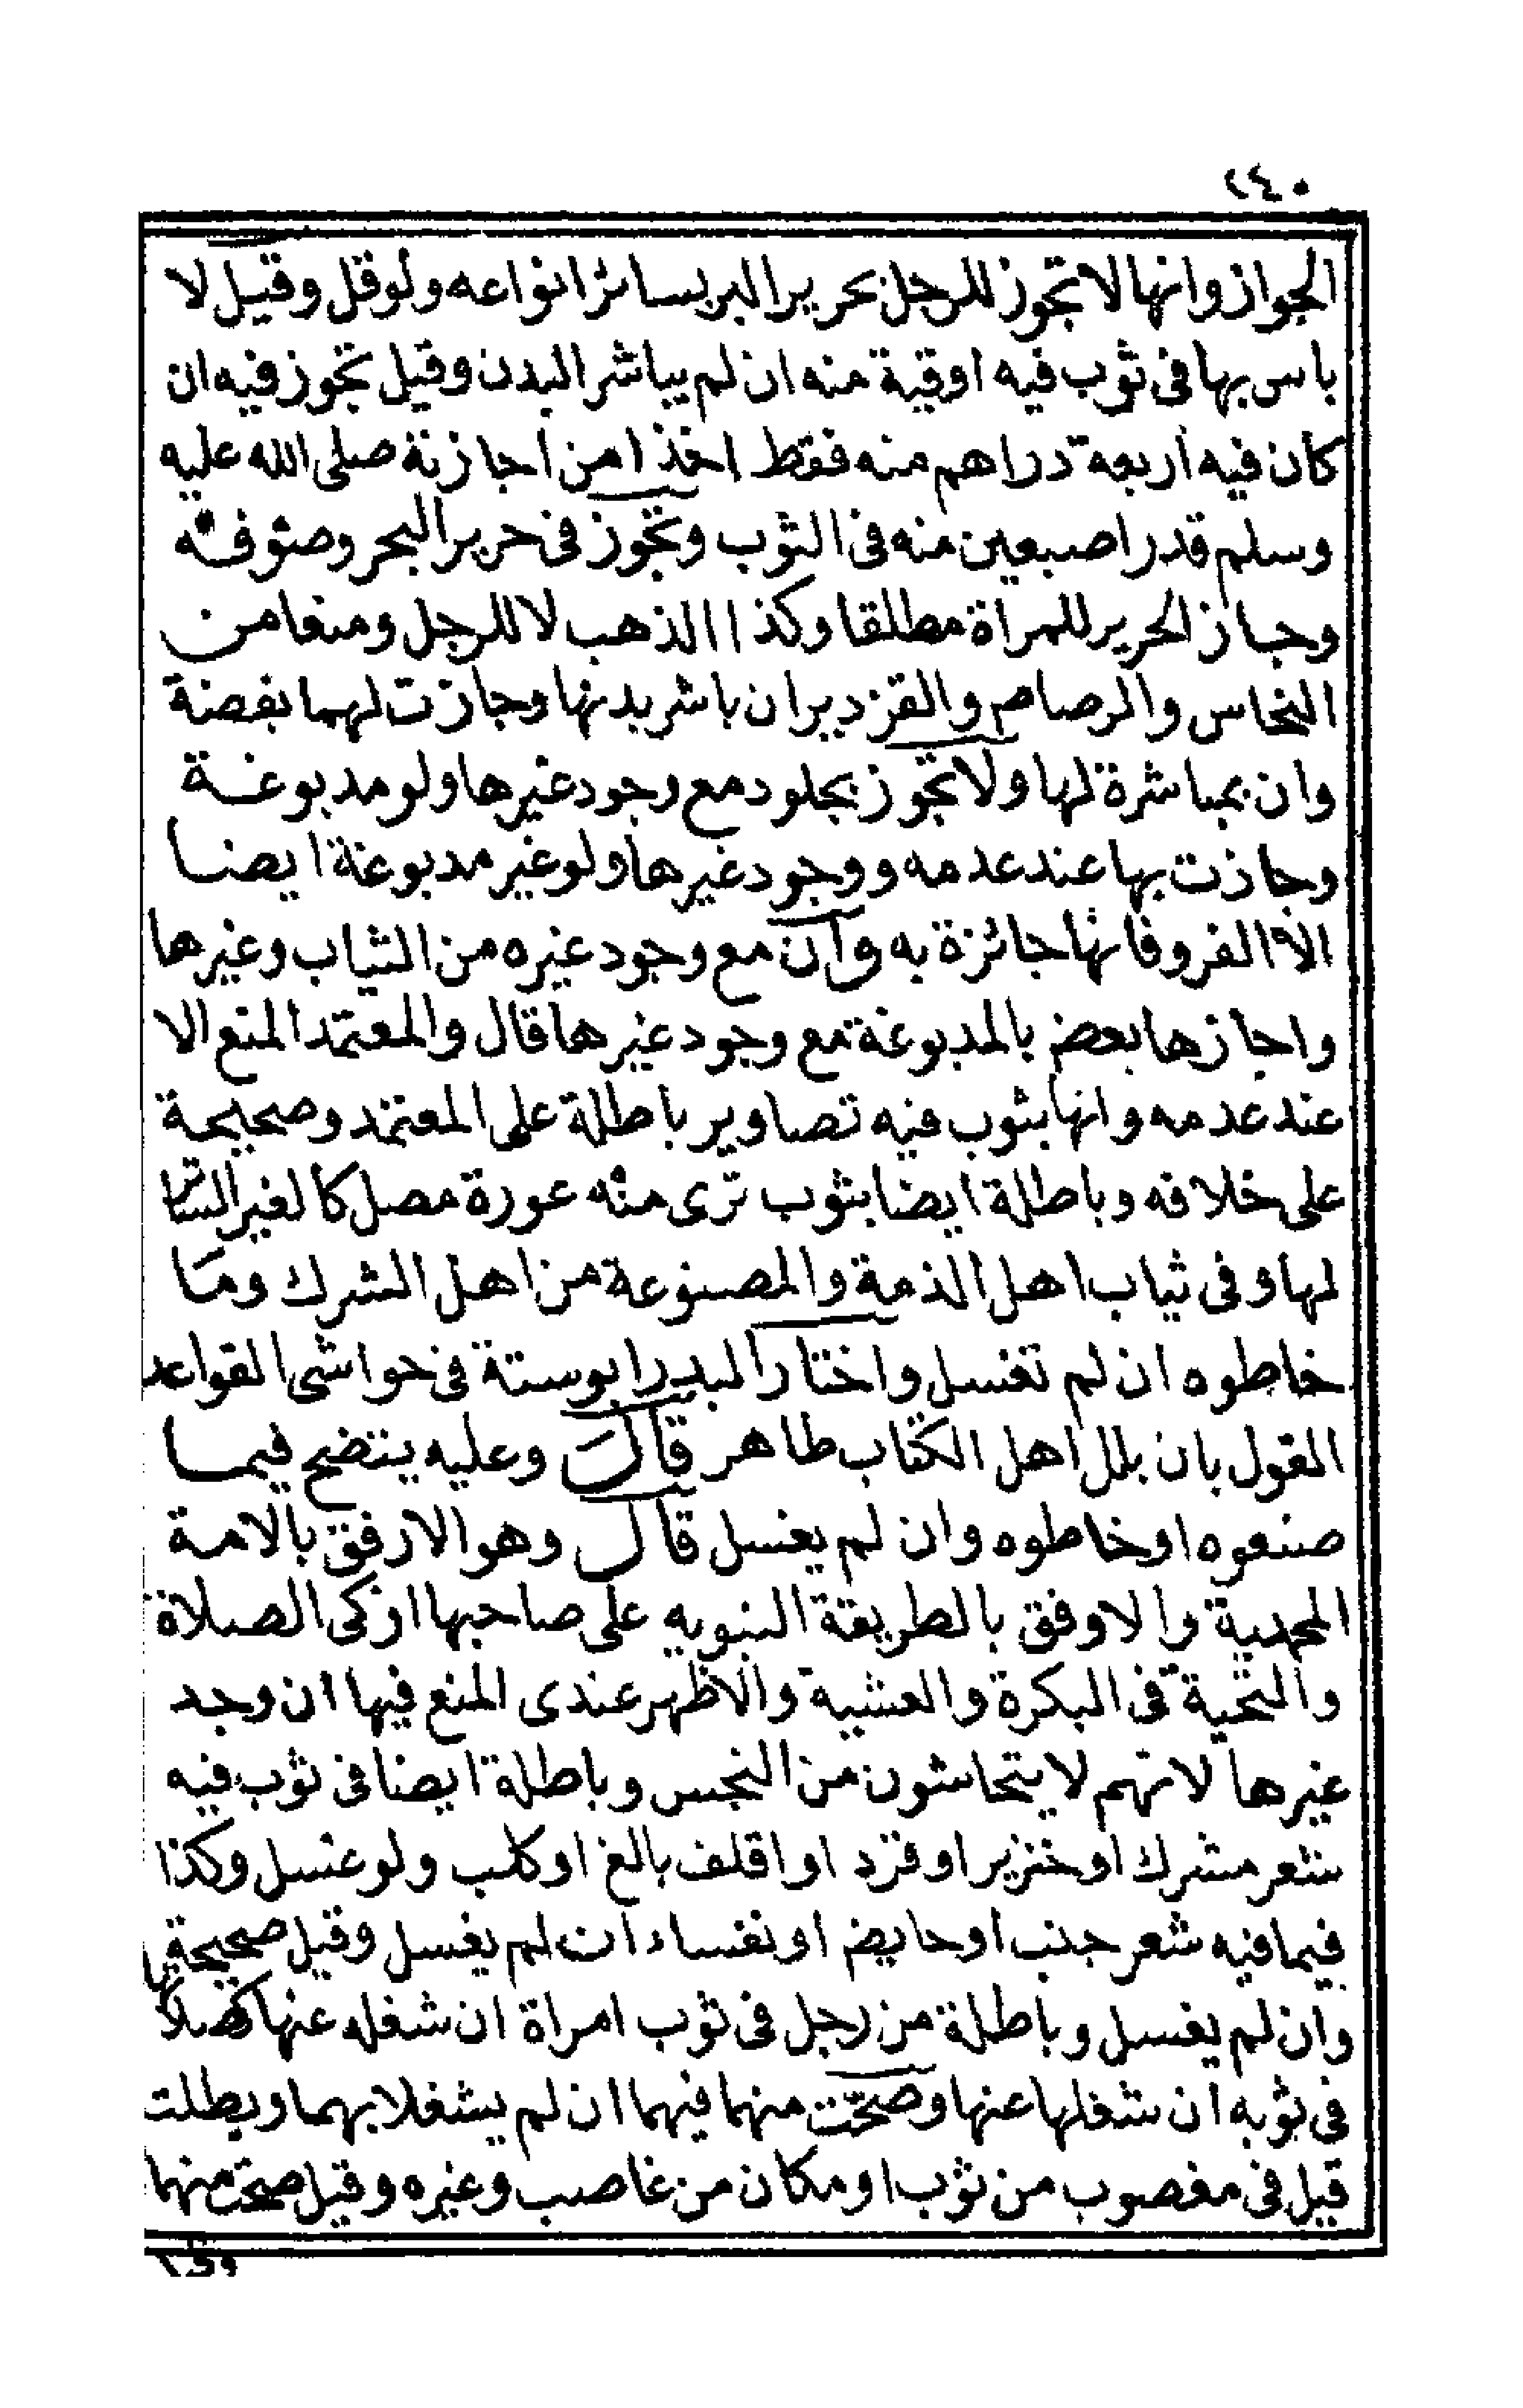 ٢٤٠
الجواز وانها لا تجوز للرجل بحرير البر بسائر انواعه ولو قل وقيل لا
باس بها فى ثوب فيه اوقية منه ان لم يباشر البدن وقيل تجوز فيه ان
كان فيه اربعة دراهم منه فقط اخذا من اجازته صلى الله عليه
وسلم قدر اصبعين منه فى الثوب وتجوز فى حرير البحر وصوفه
وجاز الحرير للمراة مطلقا وكذا الذهب لا للرجل ومنعا من
النحاس والرصاص والقزدير ان باشر بدنها وجازت لهما بفضة
وان بمباشرة لها ولا تجوز بجلود مع وجود غيرها ولو مدبوغة
وجازت بها عند عدمه ووجود غيرها ولو غير مدبوغة ايضا
الا الفرو فانها جائزة به وان مع وجود غيره من الثياب وغيرها
واجازها بعض بالمدبوغة مع وجود غيرها قال والمعتمد المنع الا
عند عدمه وانها بثوب فيه تصاوير باطلة على المعتمد وصحيحة
على خلافه وباطلة ايضا بثوب ترى منه عورة مصل كالغير الساتر
لها وفى ثياب اهل الذمة والمصنوعة من اهل الشرك وما
خاطوه ان لم تغسل واختار البدر ابوستة فى حواشى القواعد
القول بان بلل اهل الكتاب طاهر قال وعليه يتضح فيما
صنعوه او خاطوه وان لم يغسل قال وهو الارفق بالامة
المحمدية والاوفق بالطريقة النبويه على صاحبها ازكى الصلاة
والتحية فى البكرة والعشية والاظهر عندى المنع فيها ان وجد
غيرها لانهم لا يتحاشون من النجس وباطلة ايضا فى ثوب فيه
شعر مشرك او خنزير او قرد او اقلف بالغ او كلب ولو غسل وكذا
فيما فيه شعر جنب او حايض او نفساء ان لم يغسل وقيل صحيحة
وان لم يغسل وباطلة من رجل فى ثوب امراة ان شغله عنها
فى ثوبه ان شغلها عنها وصحت منهما فيهما ان لم يشغلا بهما وبطلت
قيل فى مغصوب من ثوب او مكان من غاصب وغيره وقيل صحت منهما